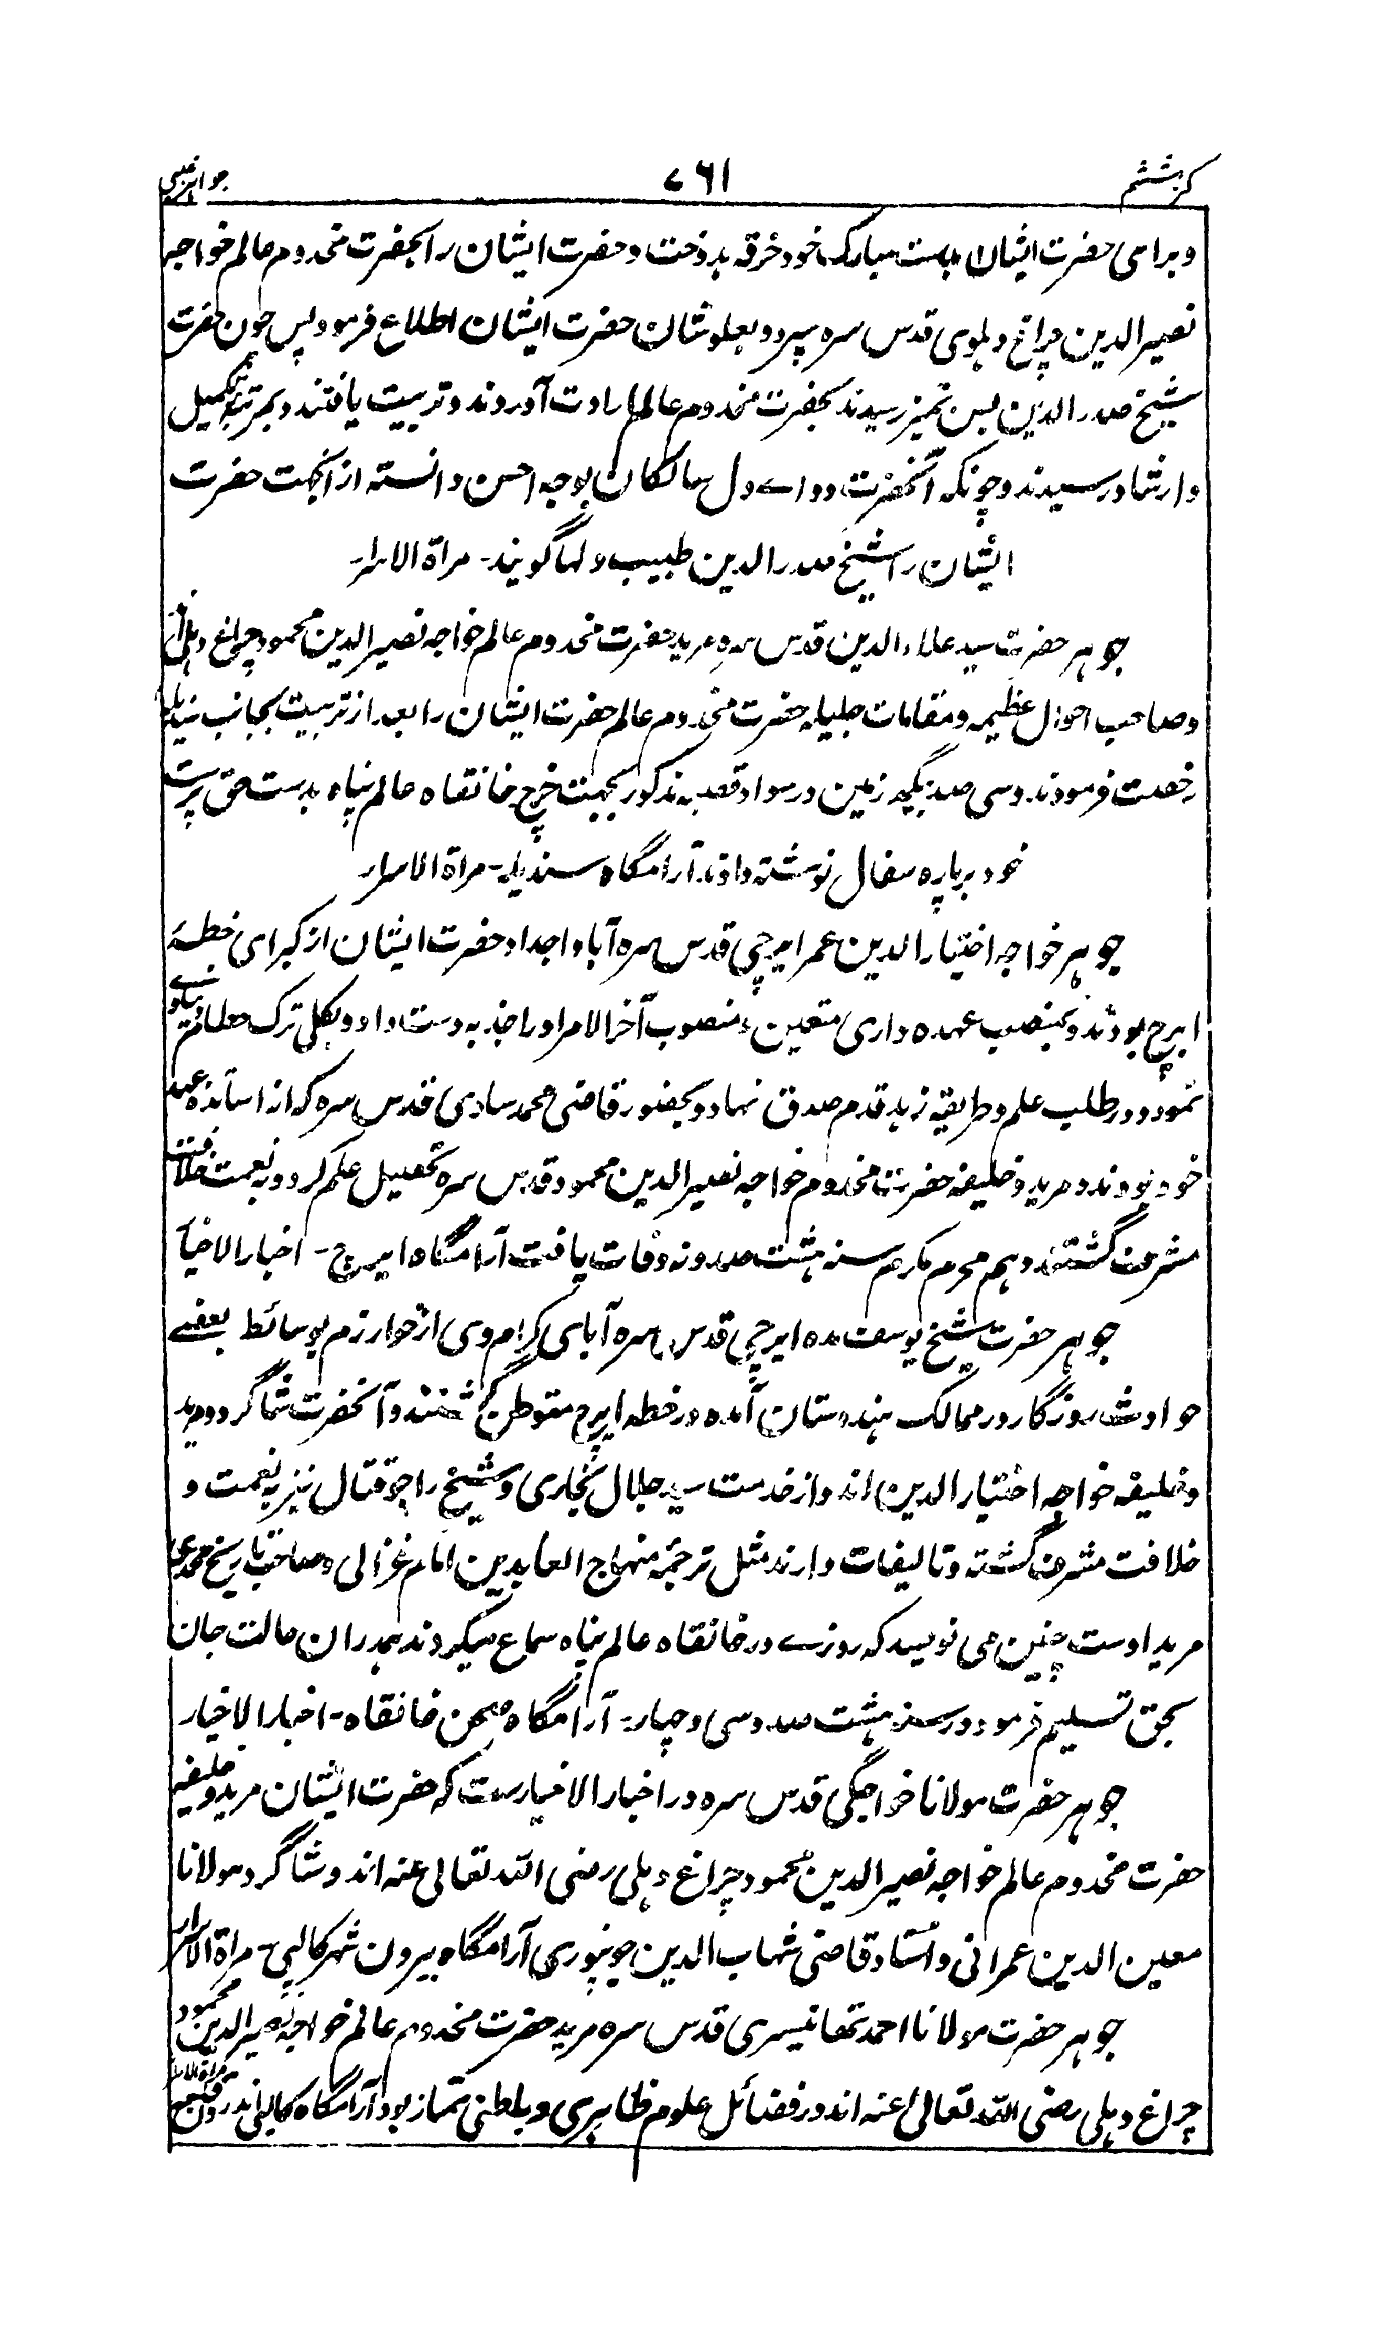 کرشششم ۷۶۱ جواہر غیبی
و برای حضرت ایشان بدست مبارک خود خرقه بدوخت و حضرت ایشان را بحضرت مخدوم عالم خواجه
نصیرالدین چراغ دہلوی قدس سره سپرد و بعلو شان حضرت ایشان اطلاع فرمود پس چون حضرت
شیخ صدرالدین بسن تمیز رسیدند بحضرت مخدوم عالم ارادت آوردند و تربیت یافتند و بمرتبه تکمیل
و ارشاد رسیدند و چونکه آنحضرت دوای دل سالکان بوجه احسن دانسته ازانجهت حضرت
ایشان را شیخ صدرالدین طبیب دلها گویند - مرآة الاسرار
جوہر حضرت سید علاءالدین قدس سره مرید حضرت مخدوم عالم خواجه نصیرالدین محمود چراغ دہلی اند
و صاحب احوال عظیمه و مقامات جلیله حضرت مخدوم عالم حضرت ایشان را بعد از تربیت بجانب سندیله
رخصت فرمودند و سی صد بیگه زمین در سواد قصبه مذکور بجهت خرچ خانقاه عالم پناه بدست حق پرست
خود برپاره سفال نوشته دادند آرامگاه سندیله - مرآة الاسرار
جوہر خواجه اختیارالدین عمر ایرچی قدس سره آبا و اجداد حضرت ایشان از کبرای خطۀ
ایرچ بودند و بمنصب عهده داری متعین و منصوب آخرالامر او را جذبه دست داد و بکلی ترک معاملات دنیاوی
نمود و در طلب علم و طریقه زہد قدم صدق نہاد و بحضور قاضی محمد ساوی قدس سره که از اساتذه عہد
خود بودند و مرید و خلیفه حضرت مخدوم خواجه نصیرالدین محمود قدس سره تحصیل علم کرد و بنعمت خلافت
مشرف گشتند دہم محرم مکرم سنه ہشت صد و نه وفات یافت آرامگاه ایرچ - اخبارالاخیار
جوہر حضرت شیخ یوسف بده ایرچی قدس سره آبای کرام وی از خوارزم بوسائط بعضے
حوادث روزگار در ممالک ہندوستان آمده در خطه ایرچ متوطن گشتند و آنحضرت شاگرد و مرید
و خلیفه خواجه اختیارالدین اند و از خدمت سید جلال بخاری و شیخ راجو قتال نیز بنعمت و
خلافت مشرف گشته و تالیفات دارند مثل ترجمۀ منہاج العابدین امام غزالی و صاحب تاریخ محمدی
مرید اوست چنین می نویسد که روزے در خانقاه عالم پناه سماع میکردند ہمدران حالت جان
بحق تسلیم فرمود در سنه ہشت صد و سی و چہار - آرامگاه صحن خانقاه - اخبارالاخیار
جوہر حضرت مولانا خواجگی قدس سره در اخبارالاخیارست که حضرت ایشان مرید و خلیفه
حضرت مخدوم عالم خواجه نصیرالدین محمود چراغ دہلی رضی الله تعالی عنه اند و شاگرد مولانا
معین الدین عمرانی و استاد قاضی شہاب الدین جونپوری آرامگاه بیرون شہر کالپی - مرآة الاسرار
جوہر حضرت مولانا احمد تھانیسری قدس سره مرید حضرت مخدوم عالم خواجه نصیرالدین محمود
چراغ دہلی رضی الله تعالی عنه اند در فضائل علوم ظاہری و باطنی ممتاز بود آرامگاه کالپی اندرون قلعه مرآة الاسرار